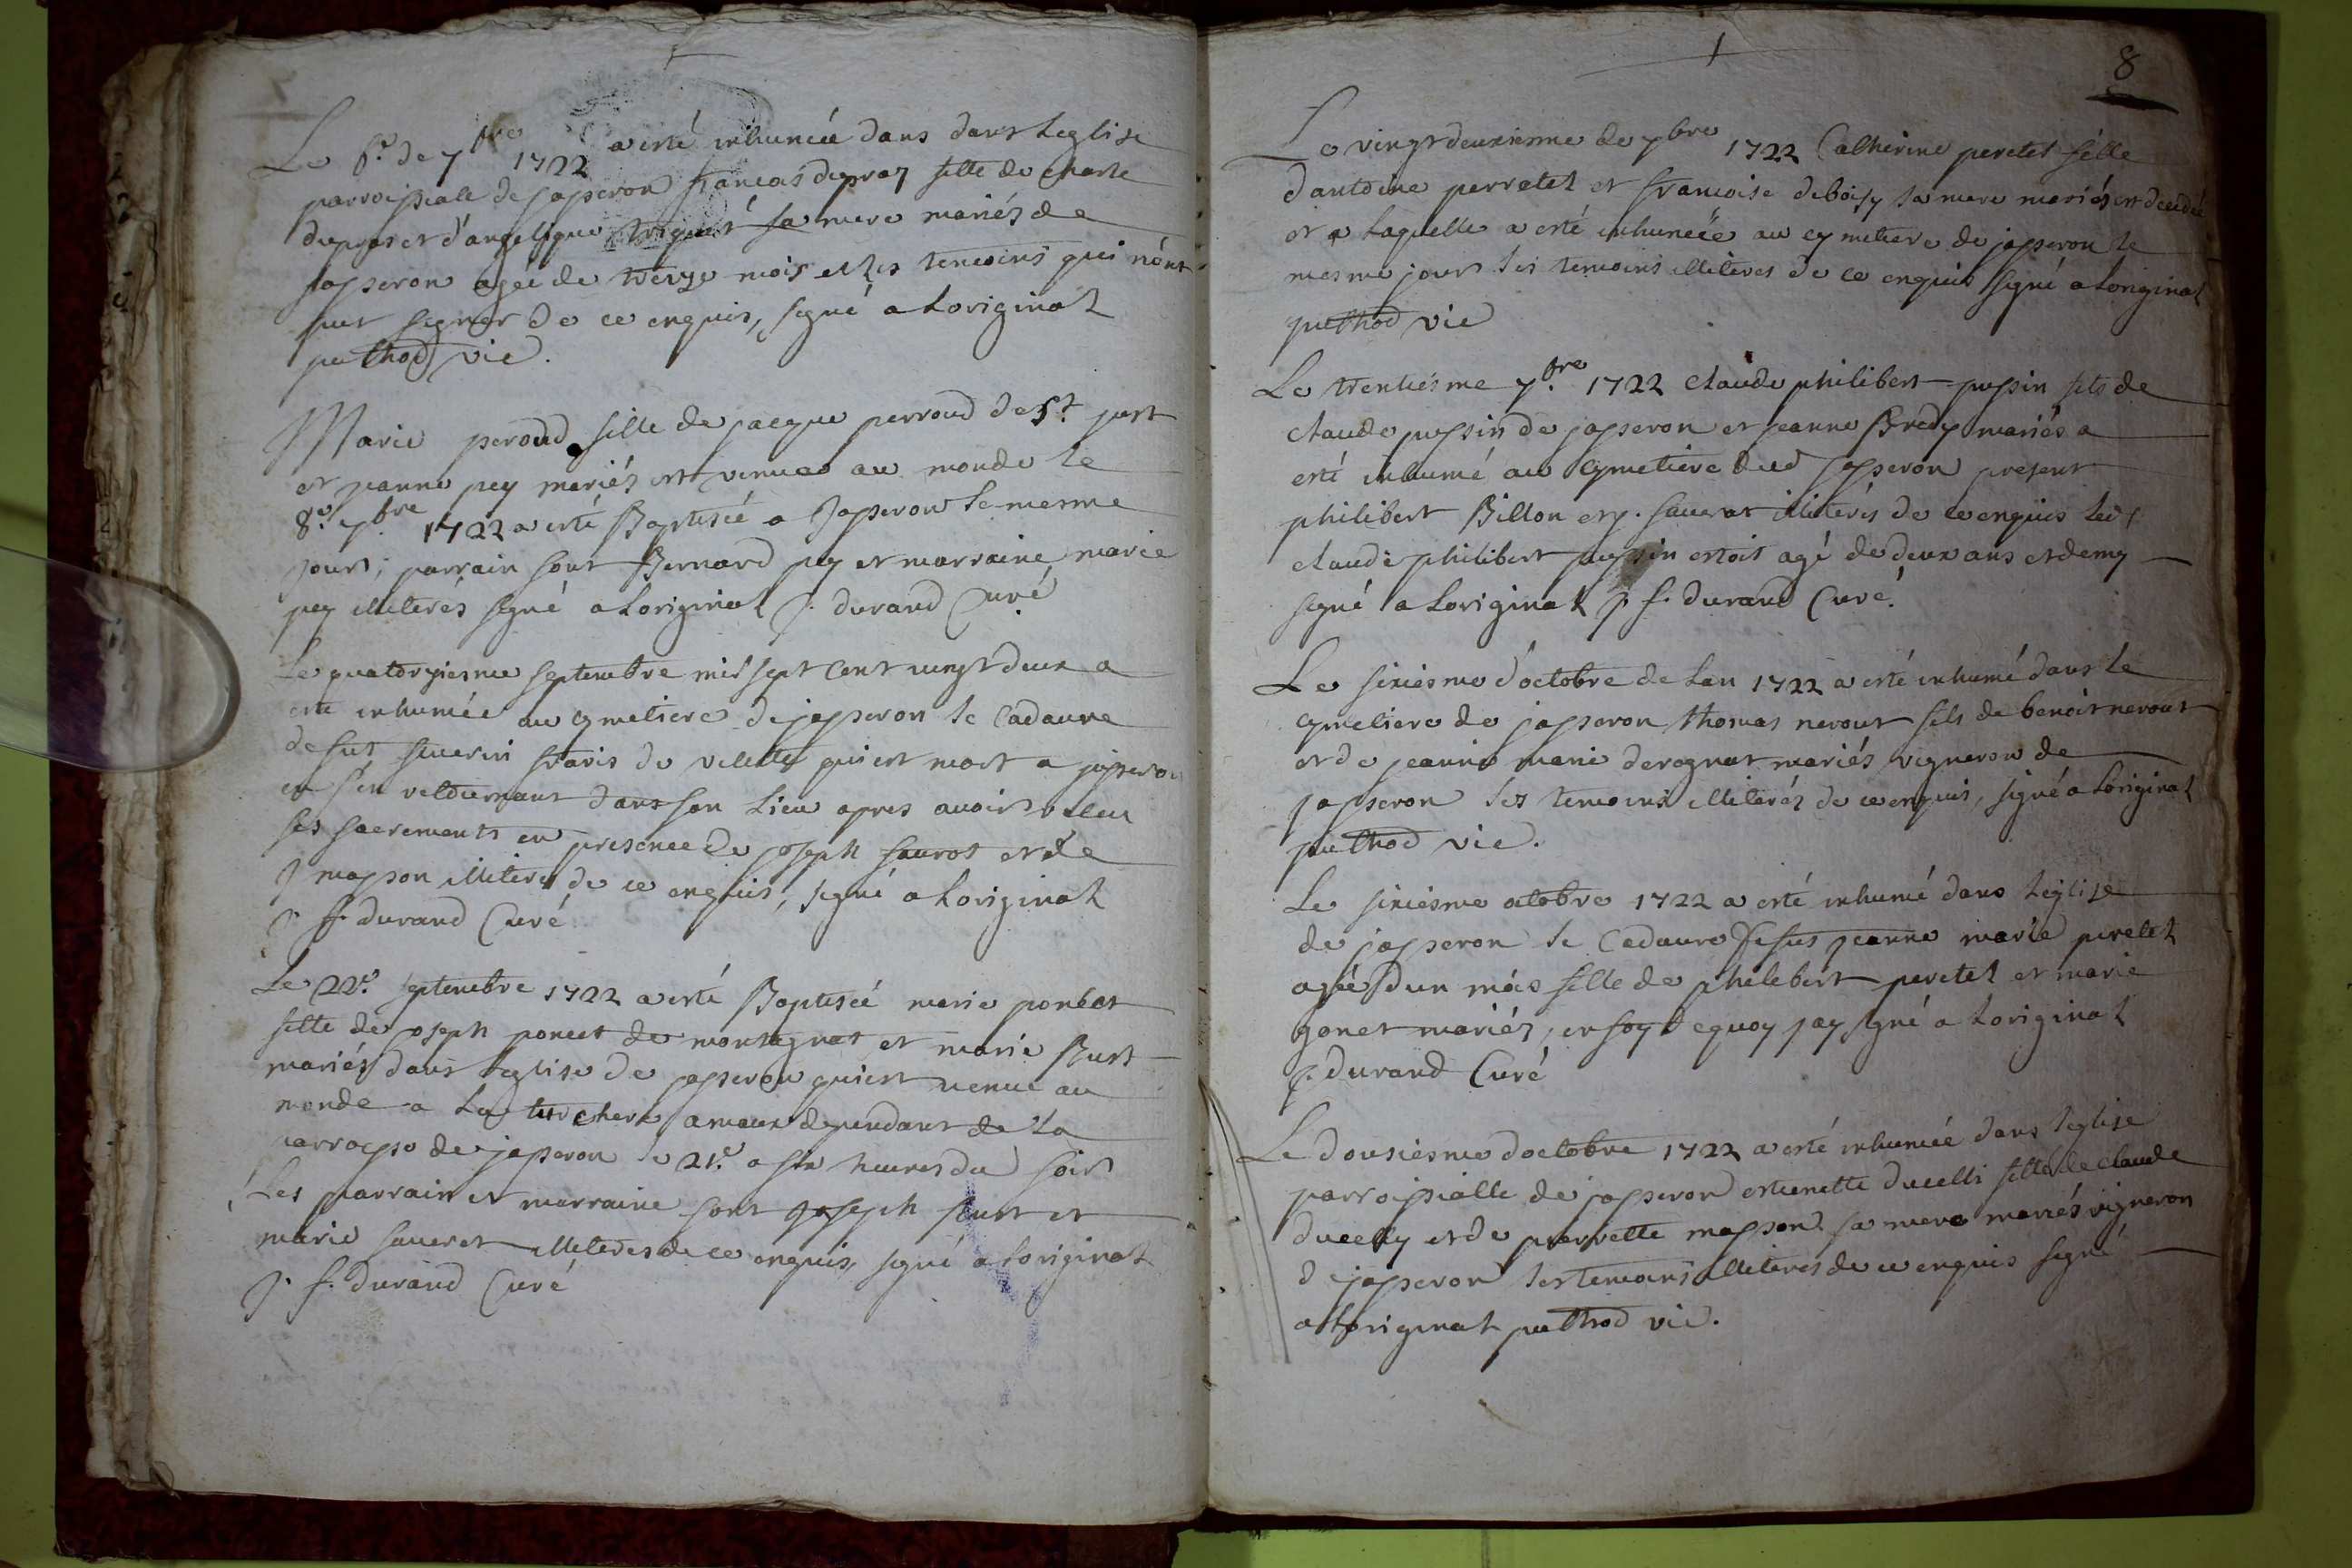 Le 6.e de 7bre 1722 a esté inhumée dans dans leglise
parroissiale de jasseron francois dupraz fille de charle
dupras et d'angelique sa mere mariés de
jasseron agée de treize mois et les temoins qui n'ont
put signer de ce enquis, signé a Loriginal
puthod vic.
Marie peroud fille de jacque perroud de St. just
et jeanne pey mariés est venue au monde le
8.e 7bre 1722 a esté Baptisée a Jasseron le mesme
jour; parrain sont Bernard pey et marraine marie
pey illiterés signé a Loriginal j. durand Curé
Le quatorziesme septembre mil sept cent vingt deux a
esté inhumée au cymetiere de jasseron le Cadavre
de fut severin de villette qui est mort a jasseron
en s'en retournant dans son lieu apres avoir receu
ses sacrements en presence de joseph sauvot et de
j masson illiteres de ce enquis, signé a Loriginal
j. f. durand Curé
Le 22.e septembre 1722 a esté Baptisée marie poncet
fille de joseph poncet de montagnat et marie Burt
mariés dans leglise de jasseron qui est venue au
monde a la ameaux dependant de la
parroisse de jasseron le 21.e a six heures du soir
Les parrain et marraine sont joseph Burt et
marie sauvret illiteres de ce enquis signé a Loriginal
J. f. durand Curé
8
Le vingt deuxiesme de 7bre 1722 Catherine peretet fille
d'antoine perretet et francoise deboisy sa mere mariés est decedée
et a laquelle a esté inhumeée au cymetiere de jasseron le
mesme jour les temoins illiteres de ce enquis signé a Loriginal
puthod vic
Le trentiesme 7.bre 1722 claude philibert pussin fils de
claude pussin de jasseron et jeanne Bredy mariés a
esté inhumé au cymetiere dud jasseron present
philibert Billon et j. sauvat illiterés de ce enquis led
claude philibert pussin estoit agé de deux ans et demy
signé a Loriginal j f. durand Curé.
Le sixiesme d'octobre de Lan 1722 a esté inhumé dans le
cymetiere de jasseron thomas nerout fils de benoit nerout
et de jeanne marie derognat mariés vigneron de
jasseron les temoins illiterés de ce enquis, signé a Loriginal
puthod vic.
Le sixiesme octobre 1722 a esté inhumé dans leglise
de jasseron le Cadavre de fut jeanne marie peretet
agée d'un mois fille de philebert peretet et marie
gonet mariés, en foy de quoy jay signé a Loriginal
j. Durand Curé
Le dousiesme doctobre 1722 a esté inhumée dans leglise
parroissialle de jasseron estienette ducelli fille de claude
ducelly et de pierrette masson sa mere mariés vigneron
d jasseron les temoins illiteres de ce enquis signé
a Loriginal puthod vic.